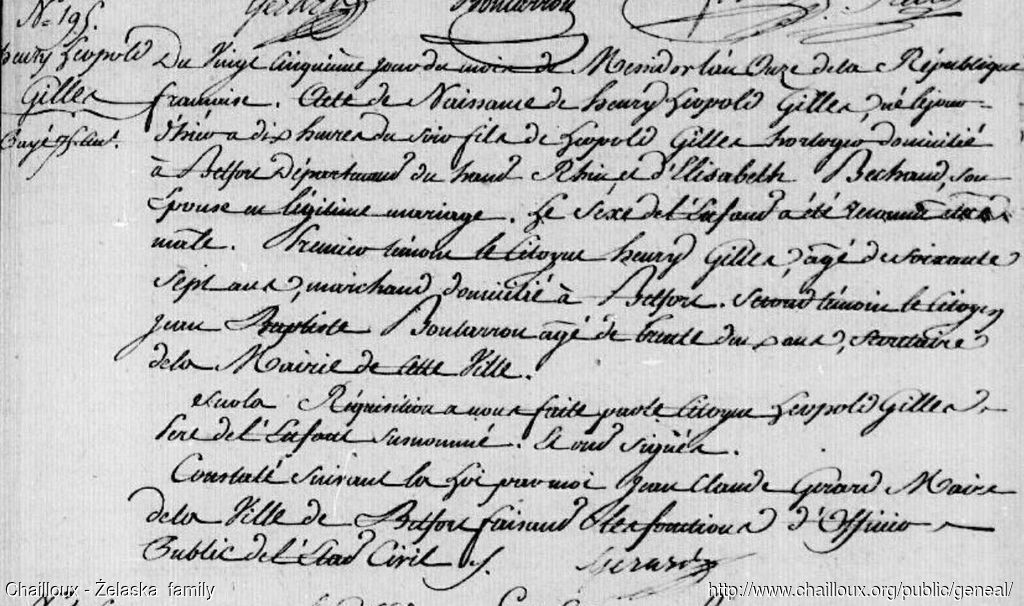 Gerard Boutarrou
N° 195.
henry Leopold
Gilles
Du Vingt cinquième jour du mois de Messidor l'an Onze de la République
francaise. Acte de Naissance de henry Leopold Gilles, né le jour
d'hier a dix heures du soir fils de Leopold Gilles horloger domicilié
à Belfort Département du haut Rhin, et d'Elisabeth Bechaud, son
Epouse en légitime mariage. Le Sexe de l'Enfant a été reconnu être
mâle. Premier témoin le Citoyen henry Gilles, agé de soixante
sept ans, marchand, domicilié à Belfort. Second témoin le Citoyen
Jean Baptiste Boutarrou agé de trente deux ans, secretaire
de la Mairie de cette Ville.
et sur la Réquisition a nous faite par le Citoyen Leopold Gilles
Pere de l'Enfant surnommé. Et ont signés.
Constaté suivant la Loi par moi Jean Claude Gerard Maire
de la Ville de Belfort faisant les fonctions d'Officier
Public de l'Etat Civil.
Gerard
Chailloux - Żelaska family
http://www.chailloux.org/public/geneal/